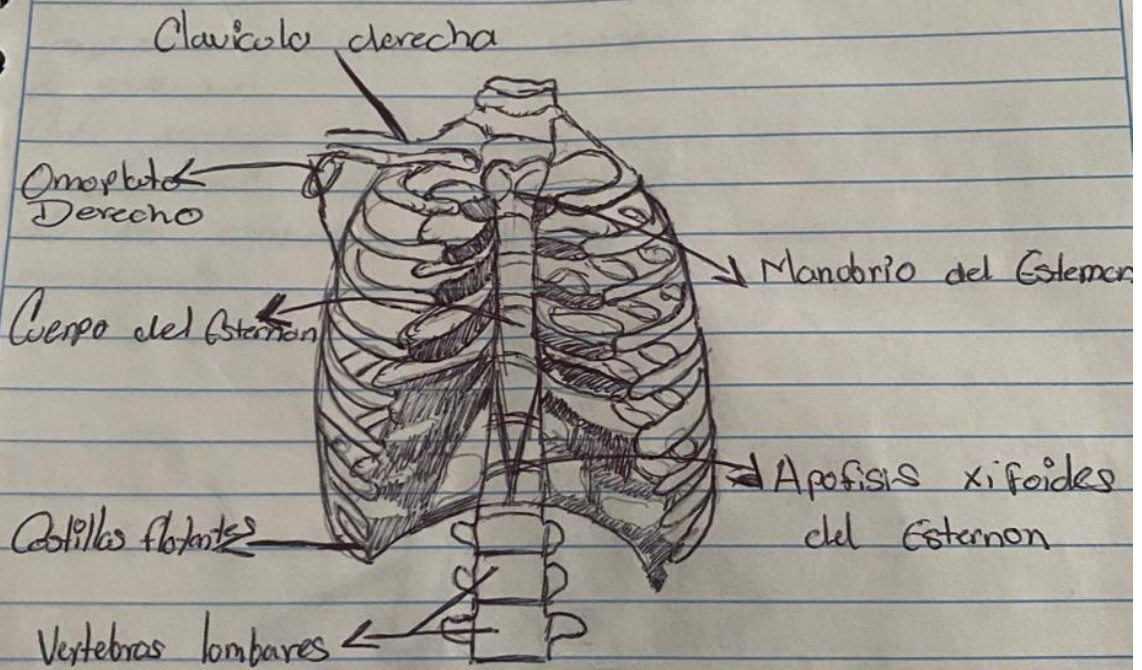 Clavicola derecha
Omoplato
Derecho
Manobrio del Esternon
Cuerpo del Esternon
Apofisis xifoides
del Esternon
Costillas flotantes
Vertebras lombares